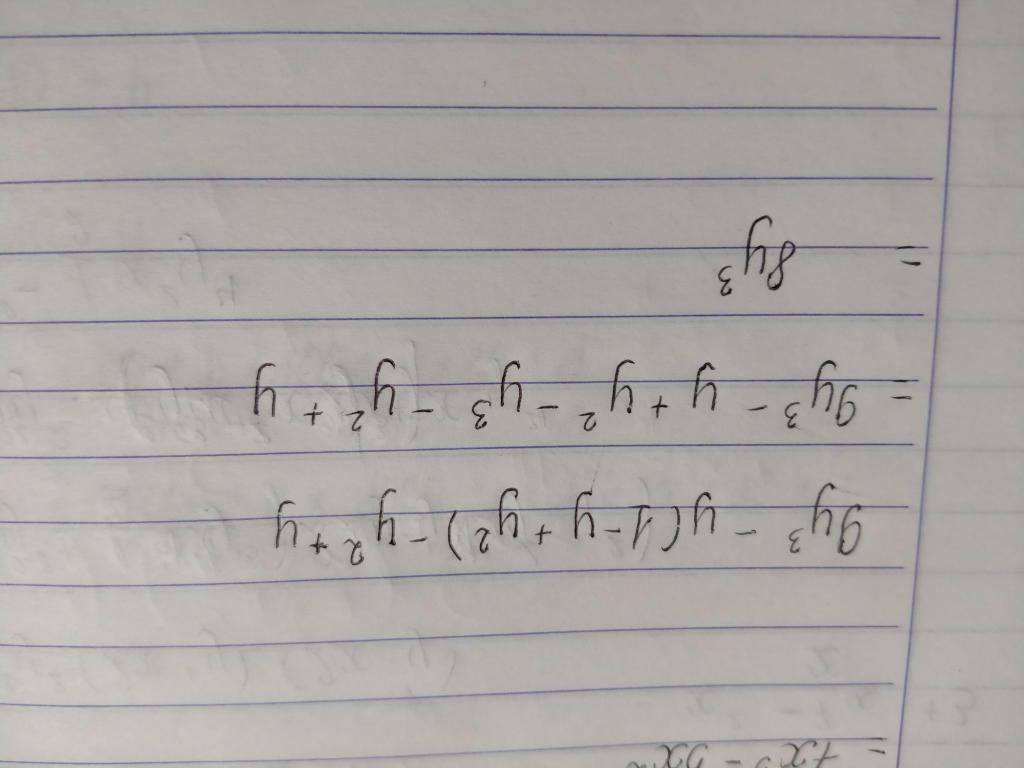 9y³ - y(1-y+y²)-y²+y
= 9y³ - y + y² - y³ - y² + y
= 8y³